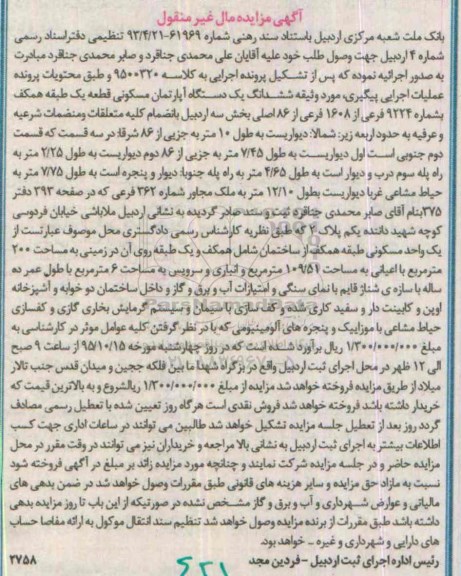 آگهی مزایده مال غیر منقول
بانک ملت شعبه مرکزی اردبیل باستناد سند رهنی شماره ۶۱۹۶۹-۹۳/۴/۲۱ تنظیمی دفتراسناد رسمی
شماره ۴ اردبیل جهت وصول طلب خود علیه آقایان علی محمدی جناقرد و صابر محمدی جناقرد مبادرت
به صدور اجرائیه نموده که پس از تشکیل پرونده اجرایی به کلاسه ۹۵۰۰۳۲۰ و طبق محتویات پرونده
عملیات اجرایی پیگیری، مورد وثیقه ششدانگ یک دستگاه آپارتمان مسکونی قطعه یک طبقه همکف
بشماره ۹۲۲۴ فرعی از ۱۶۰۸ فرعی از ۸۶ اصلی بخش سه اردبیل بانضمام کلیه متعلقات ومنضمات شرعیه
و عرفیه به حدود اربعه زیر: شمالا: دیواریست به طول ۱۰ متر به جزیی از ۸۶ شرقا: در سه قسمت که قسمت
دوم جنوبی است اول دیواریست به طول ۷/۴۵ متر به جزیی از ۸۶ دوم دیواریست به طول ۲/۲۵ متر به
راه پله سوم درب و دیوار است به طول ۴/۶۵ متر به راه پله جنوبا: دیوار و پنجره است به طول ۷/۷۵ متر به
حیاط مشاعی غربا دیواریست بطول ۱۲/۱۰ متر به ملک مجاور شماره ۳۶۲ فرعی که در صفحه ۳۹۳ دفتر
۳۷۵بنام آقای صابر محمدی جناقرد ثبت و سند صادر گردیده به نشانی اردبیل ملاباشی خیابان فردوسی
کوچه شهید داننده یکم پلاک ۲ که طبق نظریه کارشناس رسمی دادگستری محل موصوف عبارتست از
یک واحد مسکونی طبقه همکف از ساختمان شامل همکف و یک طبقه روی آن در زمینی به مساحت ۲۰۰
مترمربع با اعیانی به مساحت ۱۰۹/۵۱ مترمربع و انباری و سرویس به مساحت ۶ مترمربع با طول عمر ده
ساله با سازه ی شناژ قایم با نمای سنگی و امتیازات آب و برق و گاز و داخل ساختمان دو خوابه و آشپزخانه
اوپن و کابینت دار و سفید کاری شده و کف سازی با سیمان و سیستم گرمایش بخاری گازی و کفسازی
حیاط مشاعی با موزاییک و پنجره های آلومینیومی که با در نظر گرفتن کلیه عوامل موثر در کارشناسی به
مبلغ ۱/۳۰۰/۰۰۰/۰۰۰ ریال برآورد شده است که در روز چهارشنبه مورخه ۹۵/۱۰/۱۵ از ساعت ۹ صبح
الی ۱۲ ظهر در محل اجرای ثبت اردبیل واقع در بزرگراه شهدا ما بین فلکه ججین و میدان قدس جنب تالار
میلاد از طریق مزایده فروخته خواهد شد مزایده از مبلغ ۱/۳۰۰/۰۰۰/۰۰۰ ریالشروع و به بالاترین قیمت که
خریدار داشته باشد فروخته خواهد شد فروش نقدی است هرگاه روز تعیین شده با تعطیل رسمی مصادف
گردد روز بعد از تعطیل جلسه مزایده تشکیل خواهد شد طالبین می توانند در ساعات اداری جهت کسب
اطلاعات بیشتر به اجرای ثبت اردبیل به نشانی بالا مراجعه و خریداران نیز می توانند در وقت مقرر در محل
مزایده حاضر و در جلسه مزایده شرکت نمایند و چنانچه مورد مزایده زائد بر مبلغ در آگهی فروخته شود
نسبت به مازاد حق مزایده و سایر هزینه های قانونی طبق مقررات وصول خواهد شد در ضمن بدهی های
مالیاتی و عوارض شهرداری و آب و برق و گاز مشخص نشده در صورتیکه از این باب تا روز مزایده بدهی
داشته باشد طبق مقررات از برنده مزایده وصول خواهد شد تنظیم سند انتقال موکول به ارائه مفاصا حساب
های دارایی و شهرداری و غیره - خواهد بود.
رئیس اداره اجرای ثبت اردبیل - فردین مجد ۲۷۵۸
۶۲۱